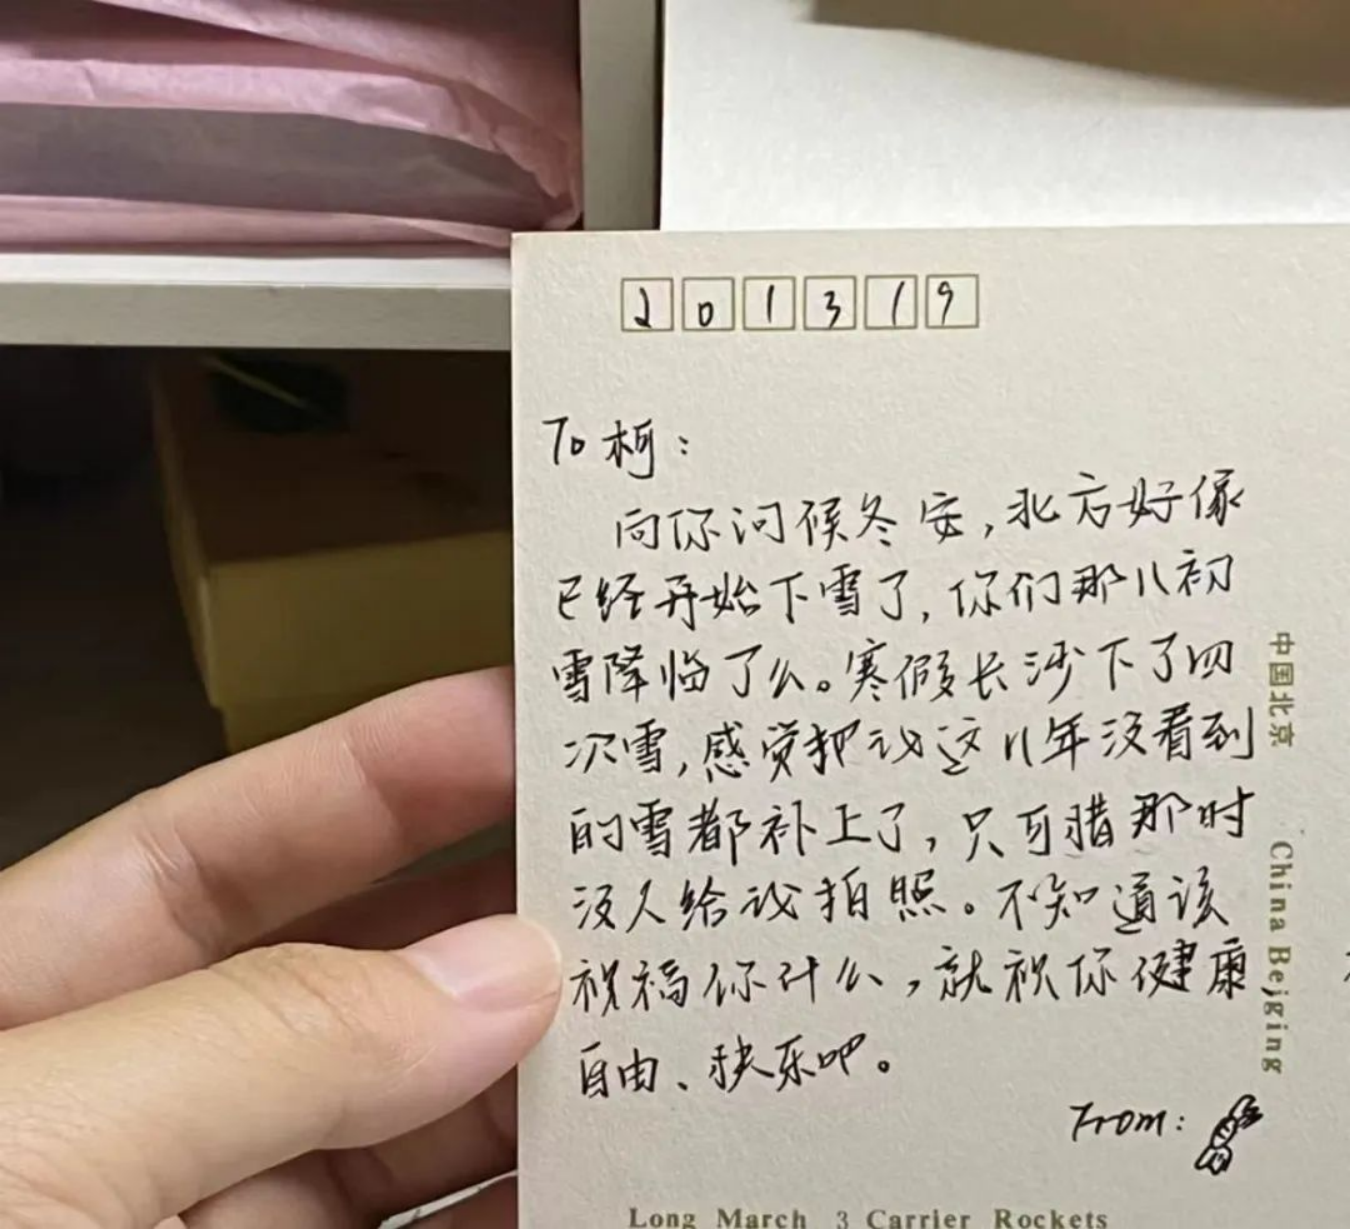 201319
To 柯：
向你问候冬安，北方好像
已经开始下雪了，你们那儿初
雪降临了么。寒假长沙下了四
次雪，感觉把我这几年没看到
的雪都补上了，只可惜那时
没人给我拍照。不知道该
祝福你什么，就祝你健康
自由、快乐吧。
From:
中国北京 China Bejging
Long March 3 Carrier Rockets